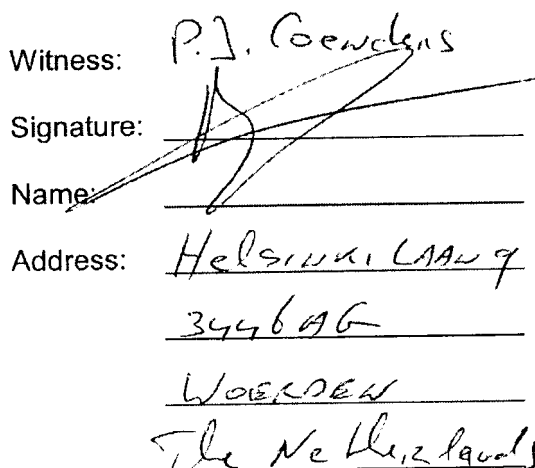 Witness: P.J. Coenders
Signature:
Name:
Address: Helsinkilaan 9
3446 AG
WOERDEN
The Netherlands